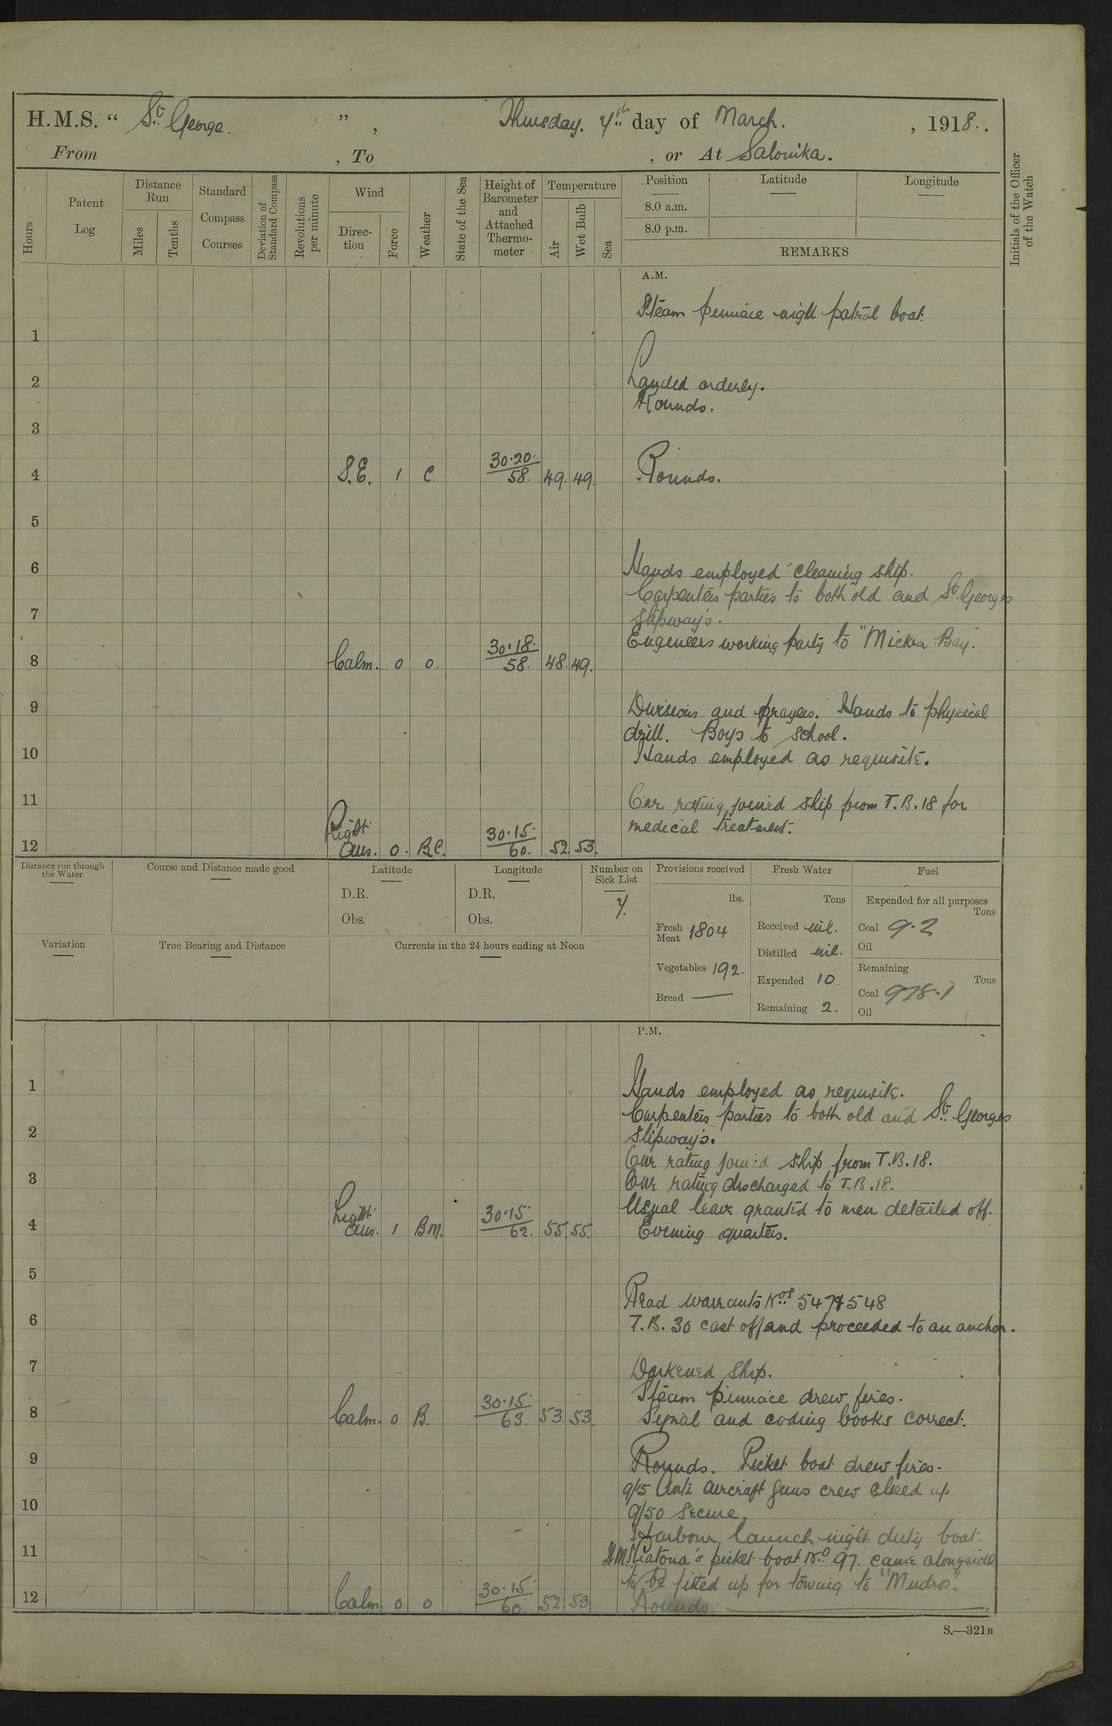 H.M.S. " St. George. " , Thursday. 7th day of March. , 1918.
From , To , or At Salonika.
Hours
Patent Log
Distance Run
Miles
Tenths
Standard Compass Courses
Deviation of Standard Compass
Revolutions per minute
Wind
Direction
Force
Weather
State of the Sea
Height of Barometer and Attached Thermometer
Temperature
Air
Wet Bulb
Sea
Position
8.0 a.m.
8.0 p.m.
Latitude
Longitude
REMARKS
Initials of the Officer of the Watch
A.M.
Steam pinnace night patrol boat.
1
2 Landed orderly.
Rounds.
3
4 S.E. 1 C. 30.20 58. 49. 49. Rounds.
5
6 Hands employed cleaning ship.
Carpenters parties to both old and St. Georges
7 slipway's.
Engineers working party to "Mickra Bay."
8 Calm. 0 0. 30.18 58. 48. 49.
9 Divisions and prayers. Hands to physical
drill. Boys to school.
10 Hands employed as requisite.
11 One rating joined ship from T.B.18 for
medical treatment.
12 Light airs. 0. B.C. 30.15 60. 52. 53.
Distance run through the Water
Course and Distance made good
Latitude
D.R.
Obs.
Longitude
D.R.
Obs.
Number on Sick List
7.
Provisions received
lbs.
Fresh Meat 1804
Vegetables 192.
Bread —
Fresh Water
Tons
Received nil.
Distilled nil.
Expended 10
Remaining 2.
Fuel
Expended for all purposes
Tons
Coal 9.2
Oil
Remaining
Tons
Coal 978.1
Oil
Variation
True Bearing and Distance
Currents in the 24 hours ending at Noon
P.M.
1 Hands employed as requisite.
Carpenters parties to both old and St. Georges
2 slipway's.
One rating joined ship from T.B.18.
3 One rating discharged to T.B.18.
Usual leave granted to men detailed off.
4 Light airs. 1 B.M. 30.15 62. 55. 55. Evening quarters.
5
Read warrants Nos 547 & 548
6 T.B. 30 cast off and proceeded to an anchor.
7 Darkened ship.
Steam pinnace drew fires.
8 Calm. 0 B. 30.15 63. 53. 53. Signal and coding books correct.
9 Rounds. Picket boat drew fires.
9/5 Anti aircraft guns crew closed up
10 9/50 Secure.
Harbour launch night duty boat.
11 picket boat No 97. came alongside
to be fitted up for towing to "Mudros".
12 Calm. 0 0 30.15 60. 52. 53. Rounds.
S.—321B